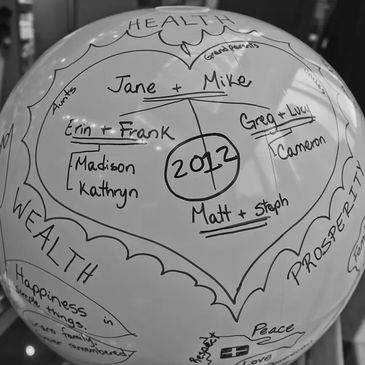 HEALTH
Grandparents
Aunts
Jane + Mike
Erin + Frank
Greg + Lucy
Madison
Kathryn
Cameron
2012
Matt + Steph
WEALTH
PROSPERITY
Happiness in
simple things.
family,
remembered
Peace
Respect
Love